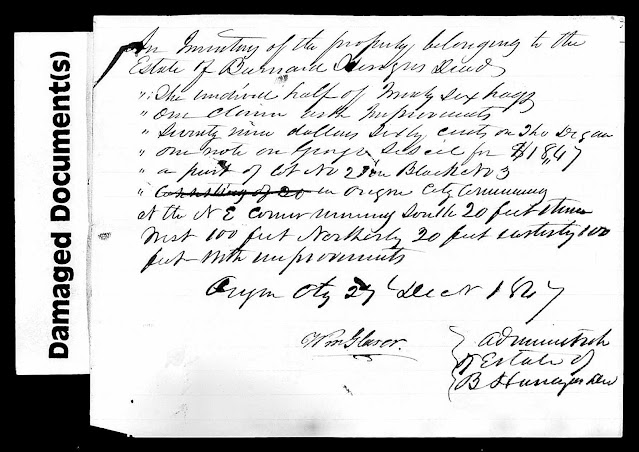 Damaged Document(s)
An Inventory of the property belonging to the
Estate of Burnard Decd
" The undivid half of Ninety Six hogs
" One Claim with Improvements
" Seventy nine dollars Sixty cents on Tho
" One note on George for $18,47
" a part of Lot No 2 in Block No 3
" Consisting of 20 in Oregon City Comming
at the N E Corner running South 20 feet thence
West 100 feet Northerly 20 feet easterly 100
feet with improvements
Oregon City 27 Decr 1847
Wm Glaser.
administrator
of Estate of
B